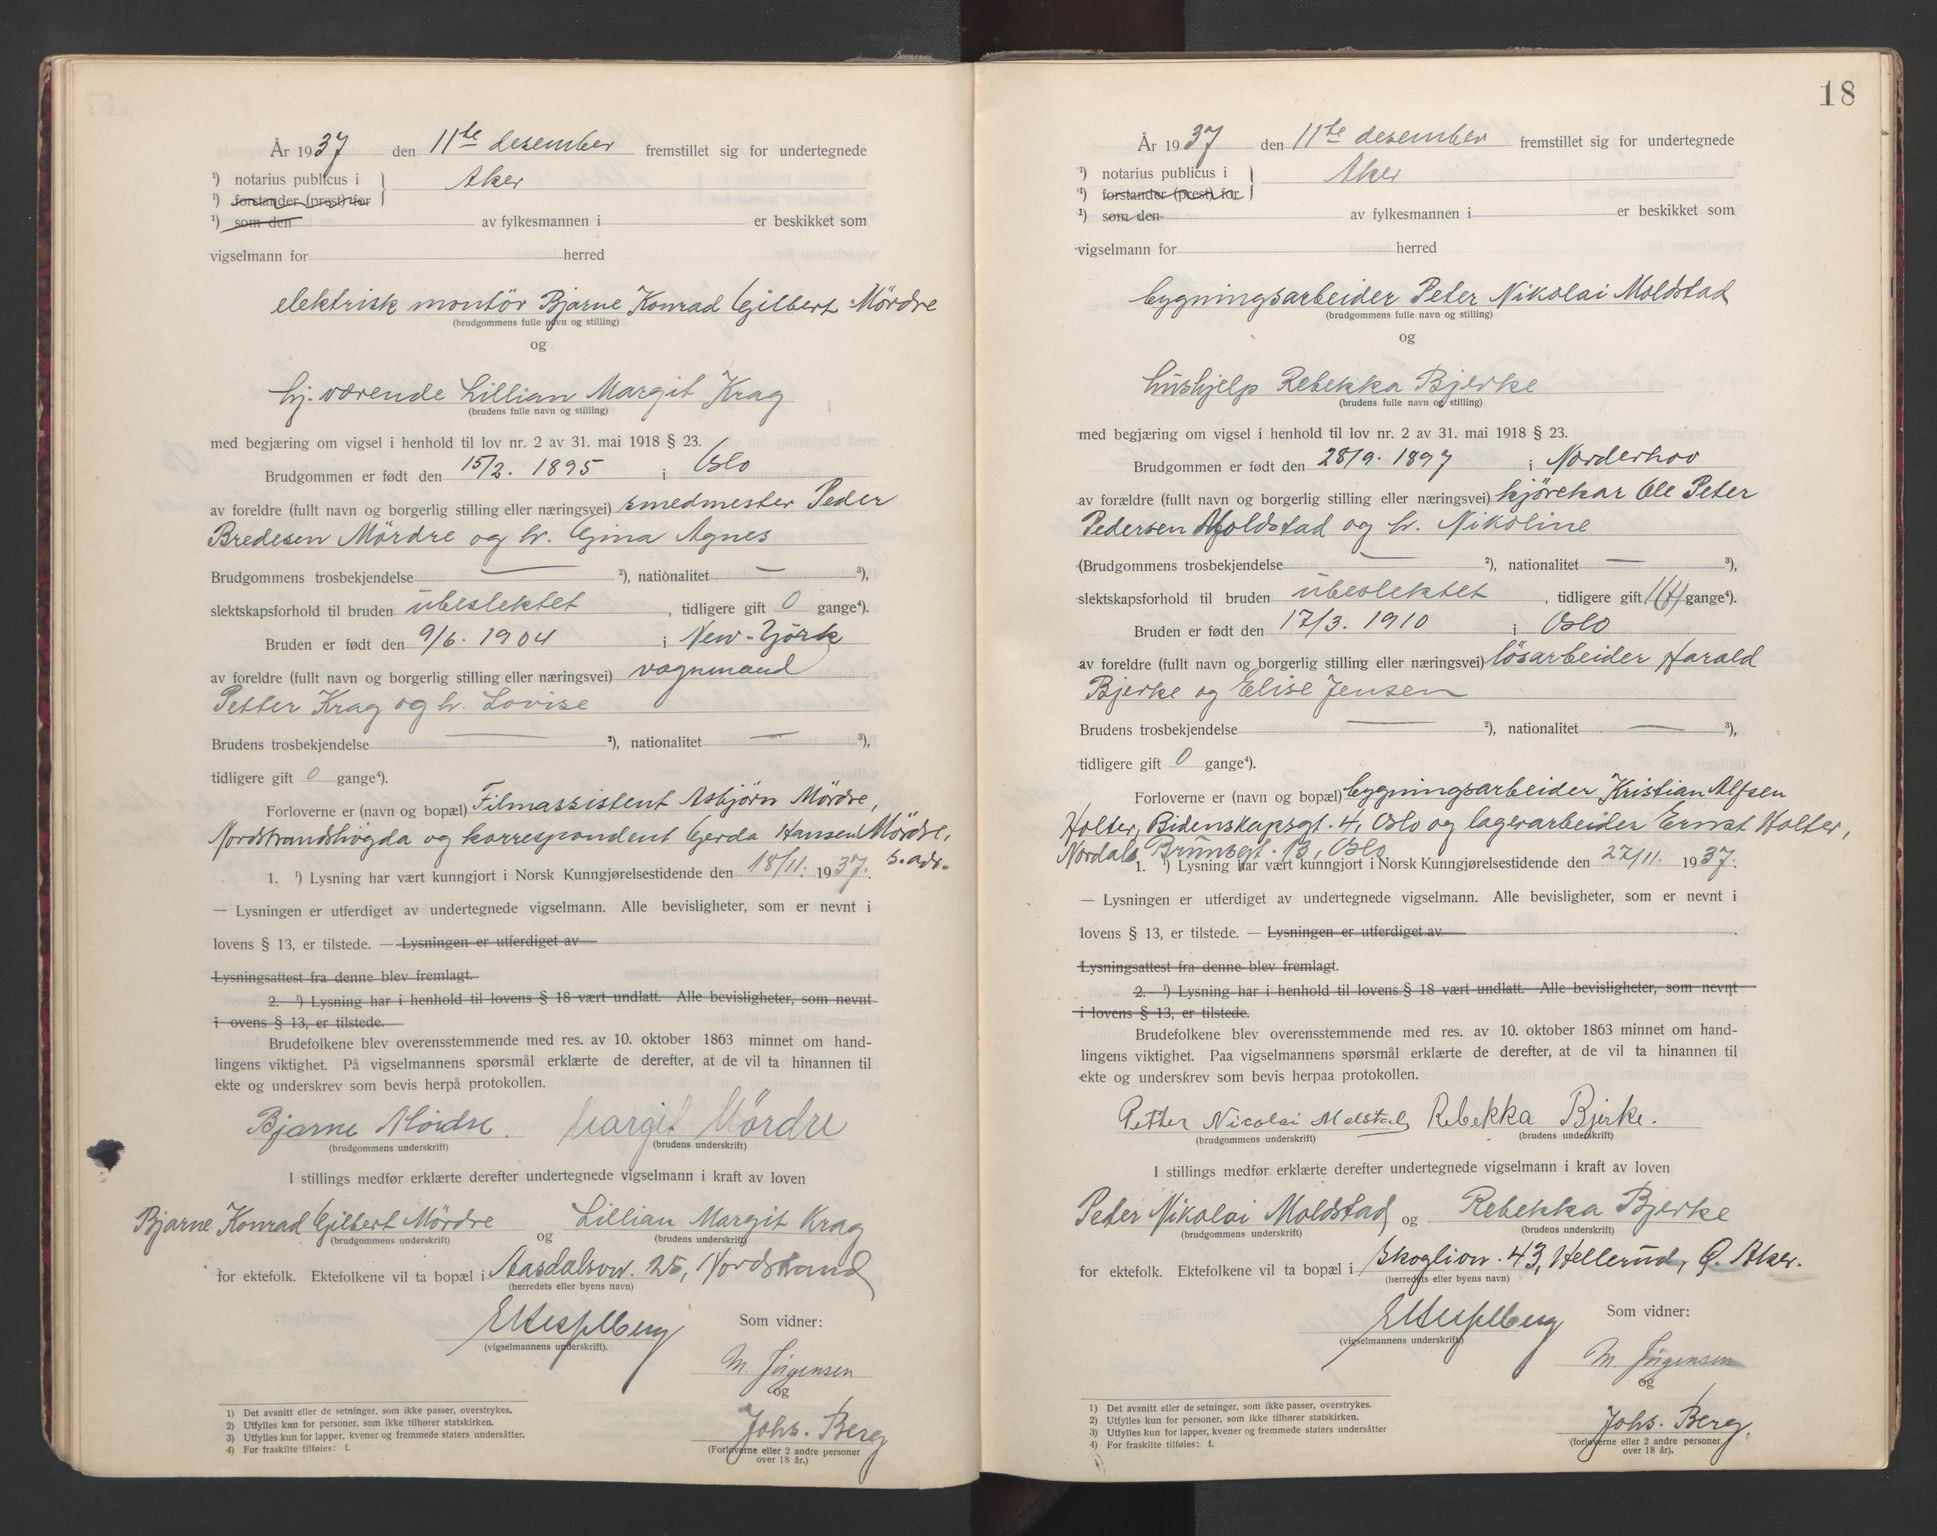 År 1937 den 11te desember fremstillet sig for undertegnede
¹) notarius publicus i Aker
¹) forstander (prest) for
¹) som den av fylkesmannen i er beskikket som
vigselmann for herred
elektrisk montör Bjarne Konrad Gilbert Mördre
(brudgommens fulle navn og stilling)
og
hj. værende Lillian Margit Krag
(brudens fulle navn og stilling)
med begjæring om vigsel i henhold til lov nr. 2 av 31. mai 1918 § 23.
Brudgommen er født den 15/2. 1895 i Oslo
av foreldre (fullt navn og borgerlig stilling eller næringsvei) smedmester Peder
Bredesen Mördre og h. Gina Agnes
Brudgommens trosbekjendelse — ²), nationalitet — ³),
slektskapsforhold til bruden ubeslektet, tidligere gift 0 gange⁴).
Bruden er født den 9/6. 1904 i New-Yörk
av foreldre (fullt navn og borgerlig stilling eller næringsvei) vognmand
Petter Krag og h. Lovise
Brudens trosbekjendelse — ²), nationalitet — ³),
tidligere gift 0 gange⁴).
Forloverne er (navn og bopæl) Filmassistent Asbjørn Mördre,
Nordstrandshögda og korrespondent Gerda Hansen Mördre,
s. adr.
1. ¹) Lysning har vært kunngjort i Norsk Kunngjørelsestidende den 18/11. 1937.
— Lysningen er utferdiget av undertegnede vigselmann. Alle bevisligheter, som er nevnt i
lovens § 13, er tilstede. — Lysningen er utferdiget av
Lysningsattest fra denne blev fremlagt.
2. ¹) Lysning har i henhold til lovens § 18 vært undlatt. Alle bevisligheter, som nevnt
i ovens § 13, er tilstede.
Brudefolkene blev overensstemmende med res. av 10. oktober 1863 minnet om hand-
lingens viktighet. På vigselmannens spørsmål erklærte de derefter, at de vil ta hinannen til
ekte og underskrev som bevis herpå protokollen.
Bjarne Mördre. Margit Mördre
(brudgommens underskrift) (brudens underskrift)
I stillings medfør erklærte derefter undertegnede vigselmann i kraft av loven
Bjarne Konrad Gilbert Mördre og Lillian Margit Krag
(brudgommens underskrift) (brudens underskrift)
for ektefolk. Ektefolkene vil ta bopæl i Aasdalsvn. 25, Nordstrand
(herredets eller byens navn)
Som vidner:
(vigselmannens underskrift).
M. Jörgensen
og
Johs. Berg
(Forloverne eller 2 andre personer
over 18 år.)
1) Det avsnitt eller de setninger, som ikke passer, overstrykes.
2) Utfylles kun for personer, som ikke tilhører statskirken.
3) Utfylles kun for lapper, kvener og fremmede staters undersåtter.
4) For fraskilte tilføies: f.
18
År 1937 den 11te desember fremstillet sig for undertegnede
¹) notarius publicus i Aker
¹) forstander (prest) for
¹) som den av fylkesmannen i er beskikket som
vigselmann for herred
bygningsarbeider Peter Nikolai Moldstad
(brudgommens fulle navn og stilling)
og
hushjelp Rebekka Bjerke
(brudens fulle navn og stilling)
med begjæring om vigsel i henhold til lov nr. 2 av 31. mai 1918 § 23.
Brudgommen er født den 28/9. 1897 i Norderhov
av forældre (fullt navn og borgerlig stilling eller næringsvei) kjörekar Ole Peter
Pedersen Moldstad og h. Nikoline
(Brudgommens trosbekjendelse — ²), nationalitet — ³),
slektskapsforhold til bruden ubeslektet, tidligere gift 1(f) gange⁴).
Bruden er født den 17/3. 1910 i Oslo
av foreldre (fullt navn og borgerlig stilling eller næringsvei) lösarbeider Harald
Bjerke og Elise Jensen
Brudens trosbekjendelse — ²), nationalitet — ³),
tidligere gift 0 gange⁴).
Forloverne er (navn og bopæl) bygningsarbeider Kristian Alfsen
Holter, Bidenskapsgt. 4, Oslo og lagerarbeider Ernst Holter,
Nordals Brunsgt. 13, Oslo
1. ¹) Lysning har vært kunngjort i Norsk Kunngjørelsestidende den 27/11. 1937.
— Lysningen er utferdiget av undertegnede vigselmann. Alle bevisligheter, som er nevnt i
lovens § 13, er tilstede. — Lysningen er utferdiget av
Lysningsattest fra denne blev fremlagt.
2. ¹) Lysning har i henhold til lovens § 18 vært undlatt. Alle bevisligheter, som nevnt
i lovens § 13, er tilstede.
Brudefolkene blev overensstemmende med res. av 10. oktober 1863 minnet om hand-
lingens viktighet. Paa vigselmannens spørsmål erklærte de derefter, at de vil ta hinannen til
ekte og underskrev som bevis herpaa protokollen.
Petter Nicolai Molstad Rebekka Bjerke.
(brudgommens underskrift) (brudens underskrift)
I stillings medfør erklærte derefter undertegnede vigselmann i kraft av loven
Peter Nikolai Moldstad og Rebekka Bjerke
(brudgommens underskrift) (brudens underskrift)
for ektefolk. Ektefolkene vil ta bopæl i Skoglivn. 43, Hellerud, Ø. Aker.
(herredets eller byens navn)
Som vidner:
(vigselmannens underskrift)
M. Jörgensen
og
Johs. Berg.
(forloverne eller 2 andre personer
over 18 år).
1) Det avsnitt eller de setninger, som ikke passer, overstrykes.
2) Utfylles kun for personer, som ikke tilhører statskirken.
3) Utfylles kun for lapper, kvener og fremmede staters undersåtter
4) For fraskilte tilføies: f.